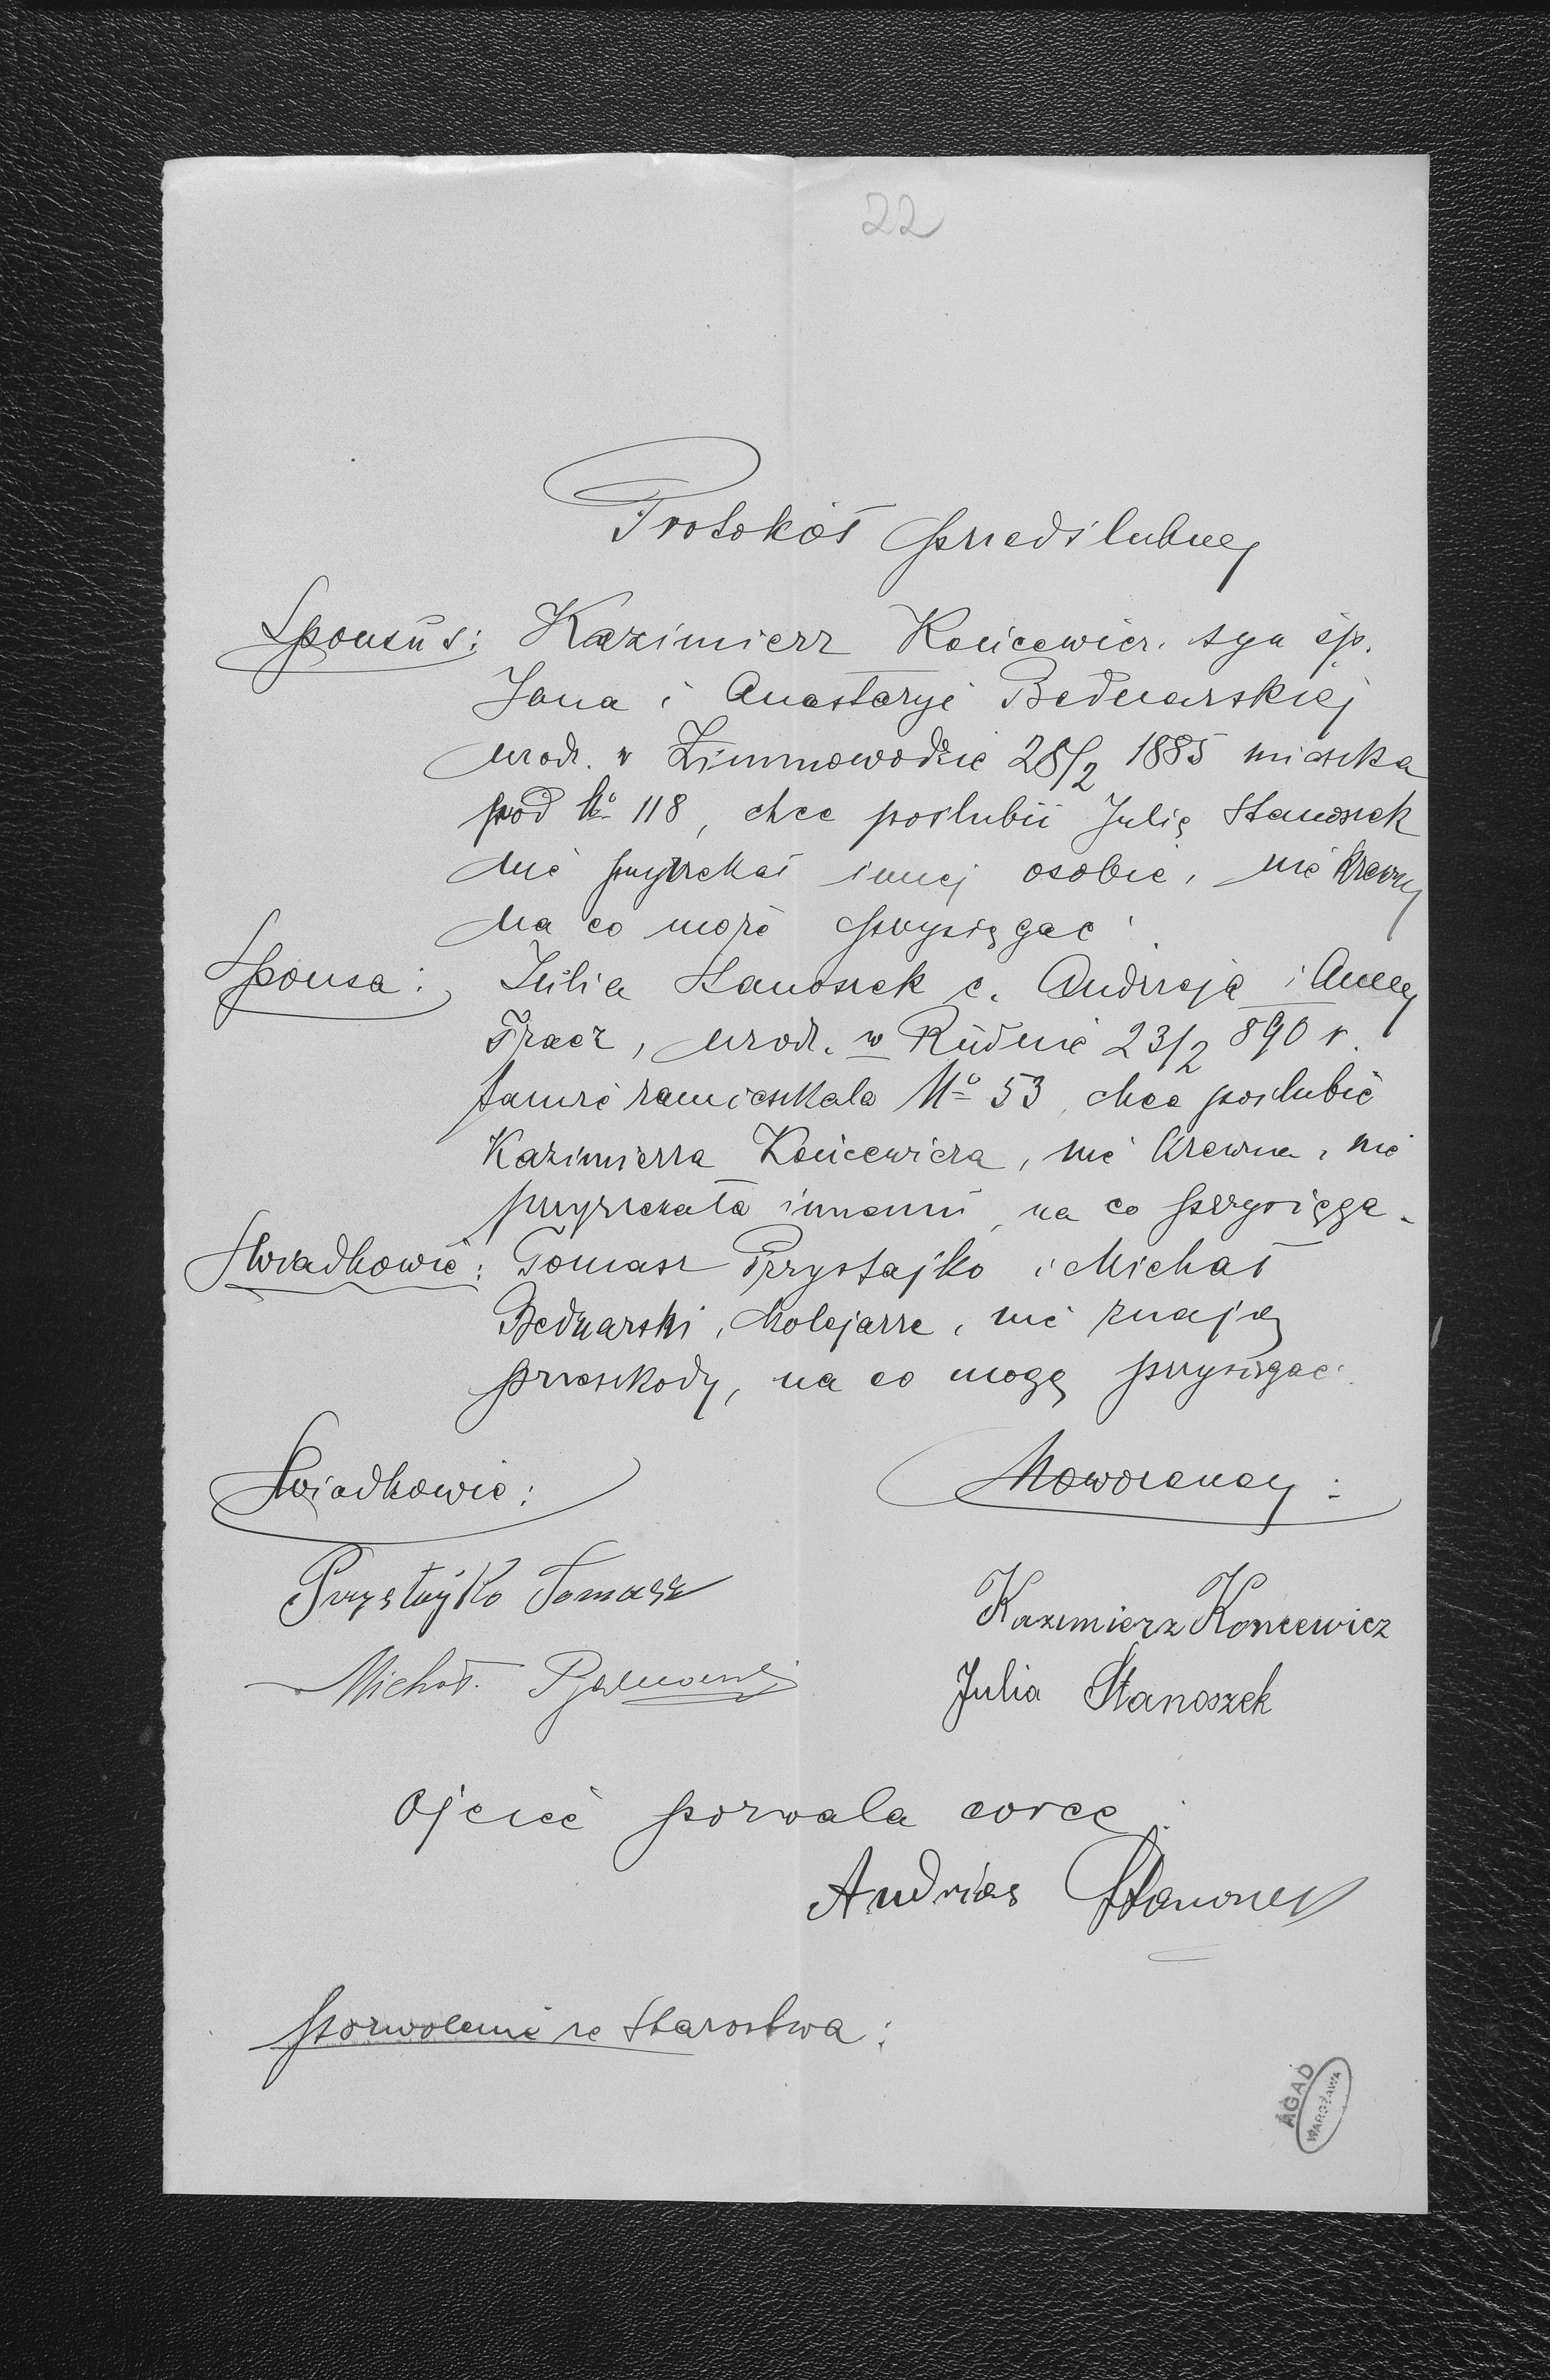 22
Protokół przedślubny
Sponsus: Kazimierz Końcewicz. syn śp.
Jana i Anastazyi Bednarskiej
urodz. w Zimnowodzie 28/2 1885 mieszka
pod No 118, chce poślubić Julię Stanoszek
nie przyrzekał innej osobie, nie krewny
na co może przysięgać.
Sponsa: Julia Stanoszek c. Andrzeja i Anny
Tracz, urodz. w Rudnie 23/2 890 r.
tamże zamieszkała No 53, chce poślubić
Kazimierza Końcewicza, nie krewna, nie
przyrzekała innemu, na co przysięga.
Świadkowie: Tomasz Przystajko i Michał
Bednarski, kolejarze, nie znają
przeszkody, na co mogą przysięgać.
Świadkowie: Nowożeńcy:
Przystajko Tomasz
Kazimierz Koncewicz
Michał
Julia Stanoszek
Ojciec pozwala córce:
Andrias
pozwolenie ze Starostwa:
AGAD
WARSZAWA